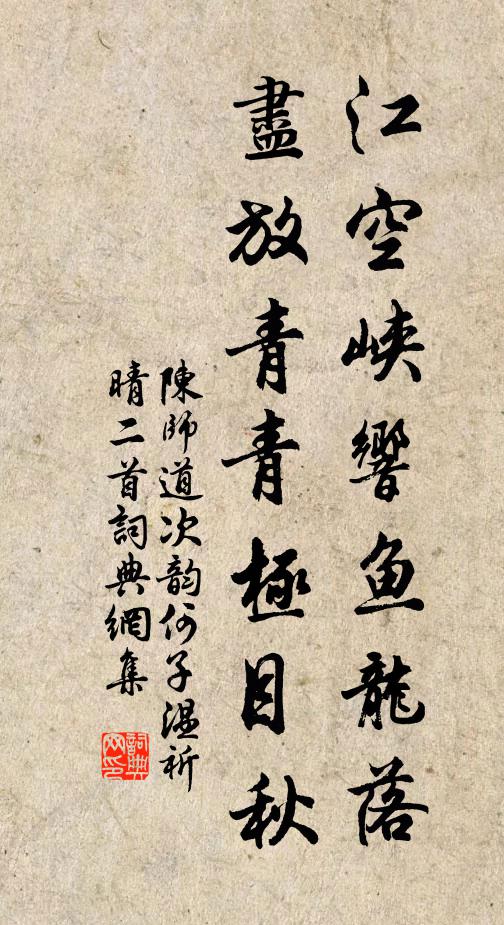 江空峽響魚龍落
盡放青青極目秋
陳師道次韵何子温祈
晴二首詞典網集
詞典
网印